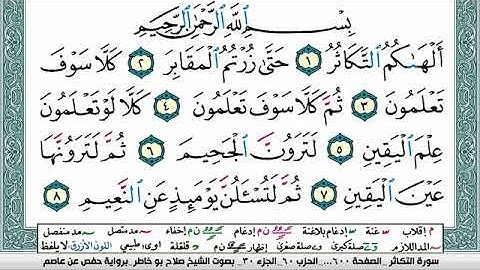 بِسْمِ اللَّهِ الرَّحْمَٰنِ الرَّحِيمِ
أَلْهَىٰكُمُ التَّكَاثُرُ ١ حَتَّىٰ زُرْتُمُ الْمَقَابِرَ ٢ كَلَّا سَوْفَ
تَعْلَمُونَ ٣ ثُمَّ كَلَّا سَوْفَ تَعْلَمُونَ ٤ كَلَّا لَوْ تَعْلَمُونَ
عِلْمَ الْيَقِينِ ٥ لَتَرَوُنَّ الْجَحِيمَ ٦ ثُمَّ لَتَرَوُنَّهَا
عَيْنَ الْيَقِينِ ٧ ثُمَّ لَتُسْـَٔلُنَّ يَوْمَئِذٍ عَنِ النَّعِيمِ ٨
م إقلاب غنة إدغام بلاغنة إدغام إخفاء مد متصل مد منفصل
المد اللازم صلة كبرى صلة صغرى إظهار قلقلة طبيعي اللون الأزرق لا يلفظ
سورة التكاثر.. الصفحة ٦٠٠.... الحزب ٦٠.. الجزء ٣٠.. بصوت الشيخ صلاح بو خاطر.. برواية حفص عن عاصم